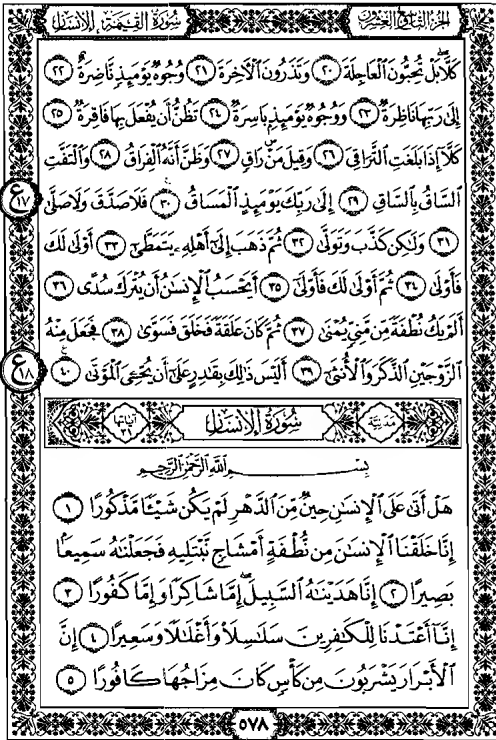 الجزء التاسع والعشرون سورة القيمة الإنسان
كَلَّا بَلْ تُحِبُّونَ ٱلْعَاجِلَةَ ٢٠ وَتَذَرُونَ ٱلْأَخِرَةَ ٢١ وُجُوهٌ يَوْمَئِذٍ نَّاضِرَةٌ ٢٢
إِلَىٰ رَبِّهَا نَاظِرَةٌ ٢٣ وَوُجُوهٌ يَوْمَئِذٍ بَاسِرَةٌ ٢٤ تَظُنُّ أَن يُفْعَلَ بِهَا فَاقِرَةٌ ٢٥
كَلَّآ إِذَا بَلَغَتِ ٱلتَّرَاقِيَ ٢٦ وَقِيلَ مَنْ رَاقٍ ٢٧ وَظَنَّ أَنَّهُ ٱلْفِرَاقُ ٢٨ وَٱلْتَفَّتِ
ٱلسَّاقُ بِٱلسَّاقِ ٢٩ إِلَىٰ رَبِّكَ يَوْمَئِذٍ ٱلْمَسَاقُ ٣٠ فَلَا صَدَّقَ وَلَا صَلَّىٰ ع ١٧
٣١ وَلَٰكِن كَذَّبَ وَتَوَلَّىٰ ٣٢ ثُمَّ ذَهَبَ إِلَىٰٓ أَهْلِهِۦ يَتَمَطَّىٰٓ ٣٣ أَوْلَىٰ لَكَ
فَأَوْلَىٰ ٣٤ ثُمَّ أَوْلَىٰ لَكَ فَأَوْلَىٰٓ ٣٥ أَيَحْسَبُ ٱلْإِنسَٰنُ أَن يُتْرَكَ سُدًى ٣٦
أَلَمْ يَكُ نُطْفَةً مِّن مَّنِيٍّ يُمْنَىٰ ٣٧ ثُمَّ كَانَ عَلَقَةً فَخَلَقَ فَسَوَّىٰ ٣٨ فَجَعَلَ مِنْهُ
ٱلزَّوْجَيْنِ ٱلذَّكَرَ وَٱلْأُنثَىٰٓ ٣٩ أَلَيْسَ ذَٰلِكَ بِقَٰدِرٍ عَلَىٰٓ أَن يُحْـِۧىَ ٱلْمَوْتَىٰ ٤٠ ع ١٨
مدنية سورة الإنسان آياتها ٣١
بسم الله الرحمن الرحيم
هَلْ أَتَىٰ عَلَى ٱلْإِنسَٰنِ حِينٌ مِّنَ ٱلدَّهْرِ لَمْ يَكُن شَيْـًٔا مَّذْكُورًا ١
إِنَّا خَلَقْنَا ٱلْإِنسَٰنَ مِن نُّطْفَةٍ أَمْشَاجٍ نَّبْتَلِيهِ فَجَعَلْنَٰهُ سَمِيعًا
بَصِيرًا ٢ إِنَّا هَدَيْنَٰهُ ٱلسَّبِيلَ إِمَّا شَاكِرًا وَإِمَّا كَفُورًا ٣
إِنَّآ أَعْتَدْنَا لِلْكَٰفِرِينَ سَلَٰسِلَاْ وَأَغْلَٰلًا وَسَعِيرًا ٤ إِنَّ
ٱلْأَبْرَارَ يَشْرَبُونَ مِن كَأْسٍ كَانَ مِزَاجُهَا كَافُورًا ٥
٥٧٨